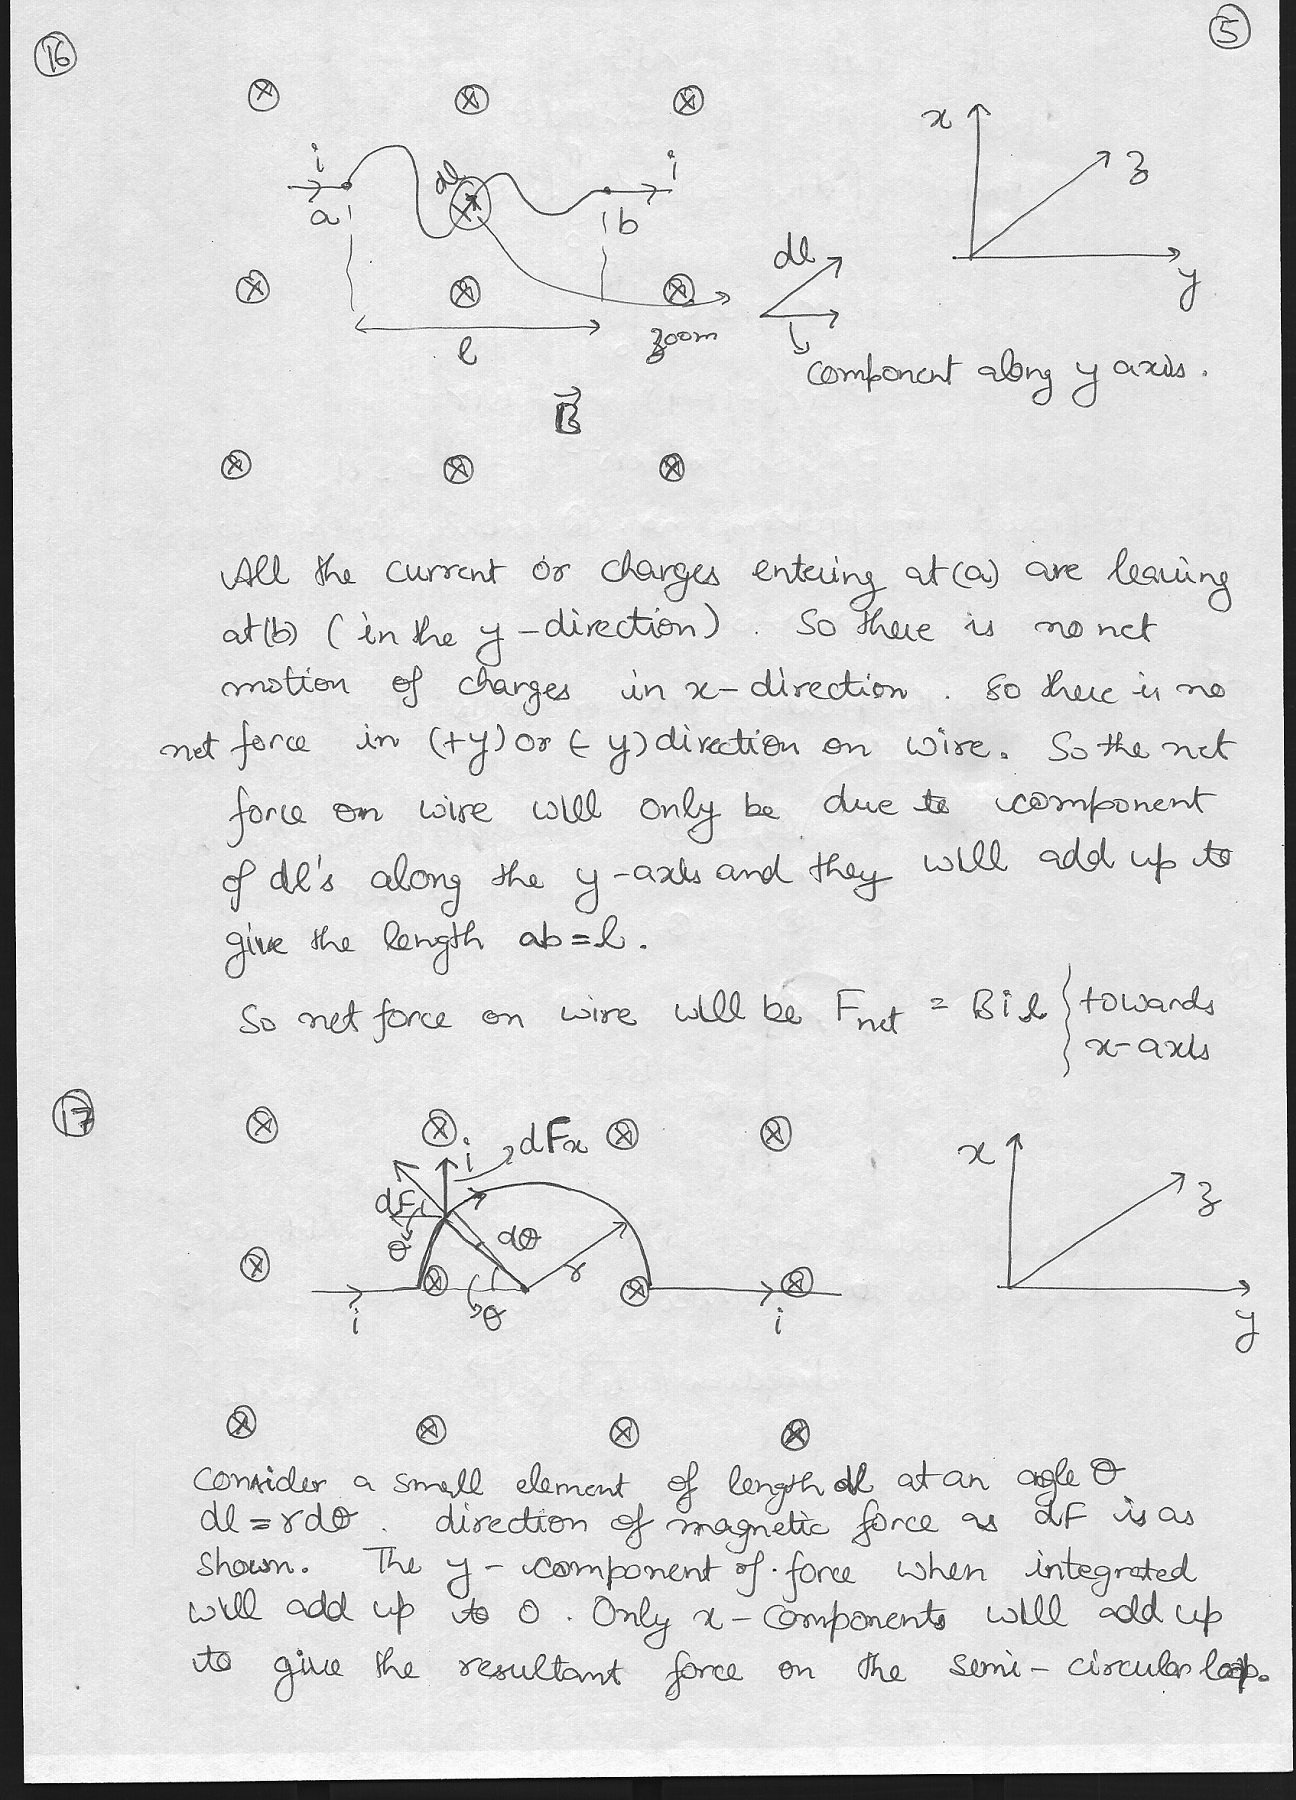 16
5
x
z
y
i
a
dl
i
b
l
zoom
dl
component along y axis.
B
All the current or charges entering at (a) are leaving
at (b) (in the y-direction). So there is no net
motion of charges in x-direction. So there is no
net force in (+y) or (-y) direction on wire. So the net
force on wire will only be due to component
of dl's along the y-axis and they will add up to
give the length ab = l.
So net force on wire will be Fnet = Bil } towards
x-axis
17
i
dFx
dF
θ
dθ
r
θ
i
i
x
z
y
Consider a small element of length dl at an agle θ
dl = rdθ. direction of magnetic force as dF is as
shown. The y-component of force when integrated
will add up to 0. Only x-components will add up
to give the resultant force on the semi-circular loop.